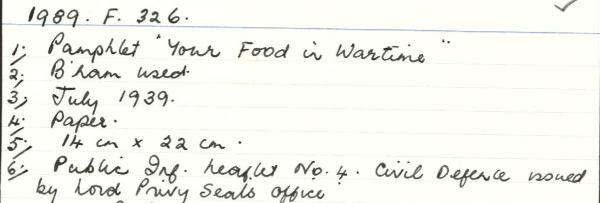 1989. F. 326.
1; Pamphlet "Your Food in Wartime"
2; B'ham used.
3; July 1939.
4; Paper.
5; 14 cm x 22 cm.
6; Public Inf. Leaflet No. 4. Civil Defence issued
by Lord Privy Seals office